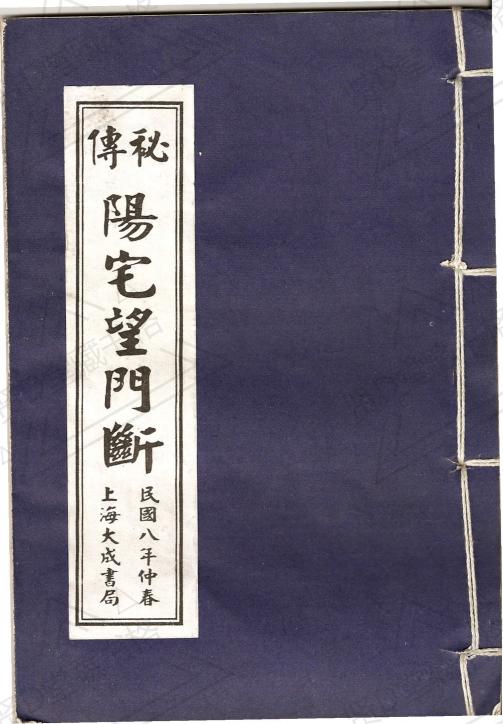 秘傳
陽宅望門斷
民國八年仲春
上海大成書局